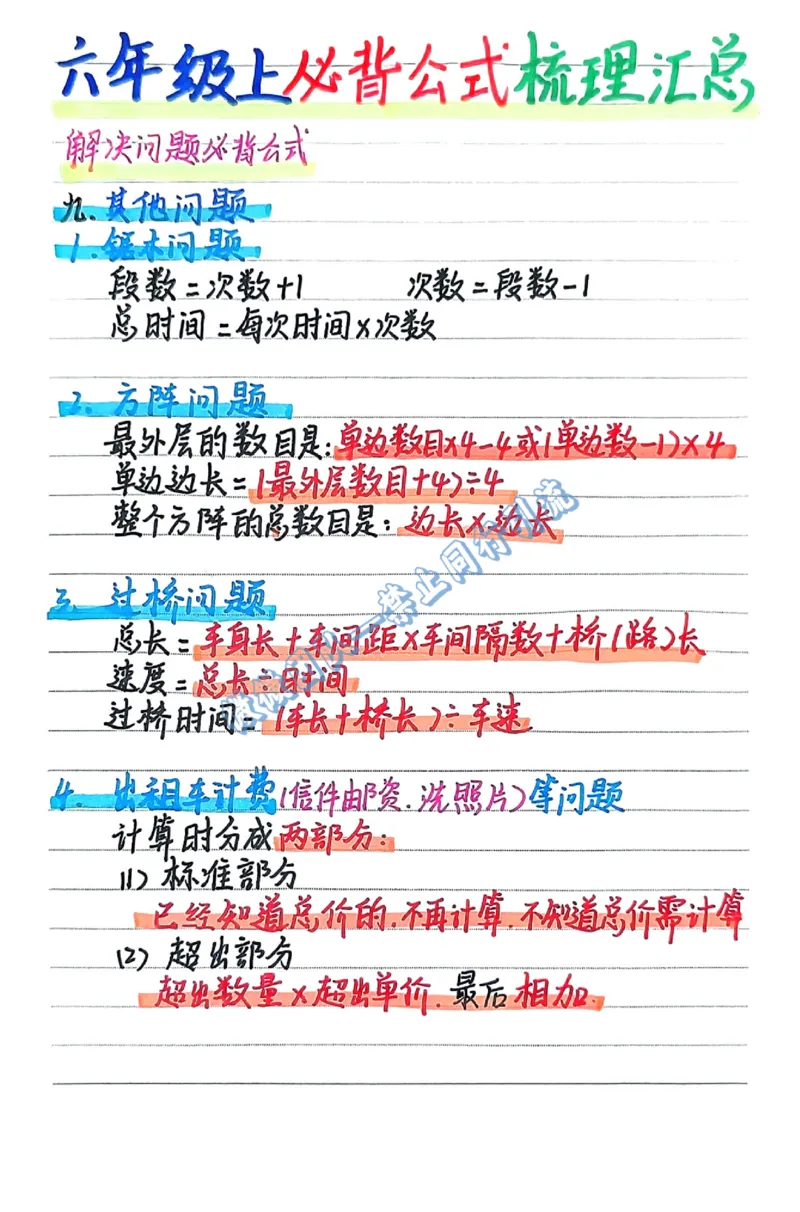 六年级上必背公式梳理汇总
解决问题必背公式
九.其他问题
1.锯木问题
段数=次数+1 次数=段数-1
总时间=每次时间×次数
2.方阵问题
最外层的数目是:单边数目×4-4或(单边数-1)×4
单边边长=(最外层数目+4)÷4
整个方阵的总数目是:边长×边长
三.过桥问题
总长=车身长+车间距×车间隔数+桥(路)长
速度=总长÷时间
过桥时间=(车长+桥长)÷车速
4.出租车计费(信件邮资.洗照片)等问题
计算时分成两部分:
(1)标准部分
已经知道总价的.不再计算.不知道总价需计算
(2)超出部分
超出数量×超出单价.最后相加.
禁止同行引流